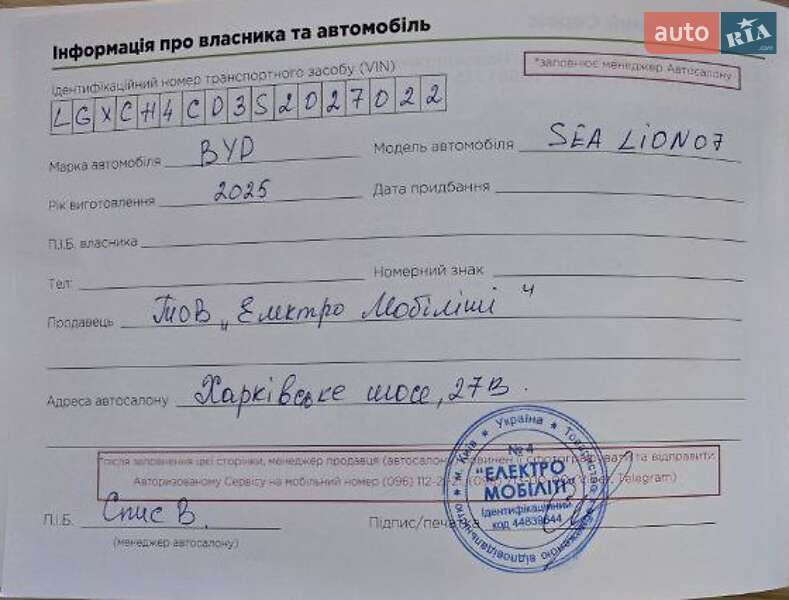 auto RIA.com
Інформація про власника та автомобіль
*заповнює менеджер Автосалону
Ідентифікаційний номер транспортного засобу (VIN)
LGXCH4CD3S2027022
Марка автомобіля BYD Модель автомобіля SEA LION07
Рік виготовлення 2025 Дата придбання
П.І.Б. власника
Тел: Номерний знак
Продавець ТОВ „Електро Мобіліті"
Адреса автосалону Харківське шосе, 27В.
*після заповнення цієї сторінки, менеджер продавця (автосалону) та відправити
Авторизованому Сервісу на мобільний номер (096) 112-2 Telegram)
П.І.Б. Спис В. Підпис/печатка
(менеджер автосалону)
Україна * м. Київ *
№ 4
"ЕЛЕКТРО
МОБІЛІТІ"
Ідентифікаційний
код 44838644